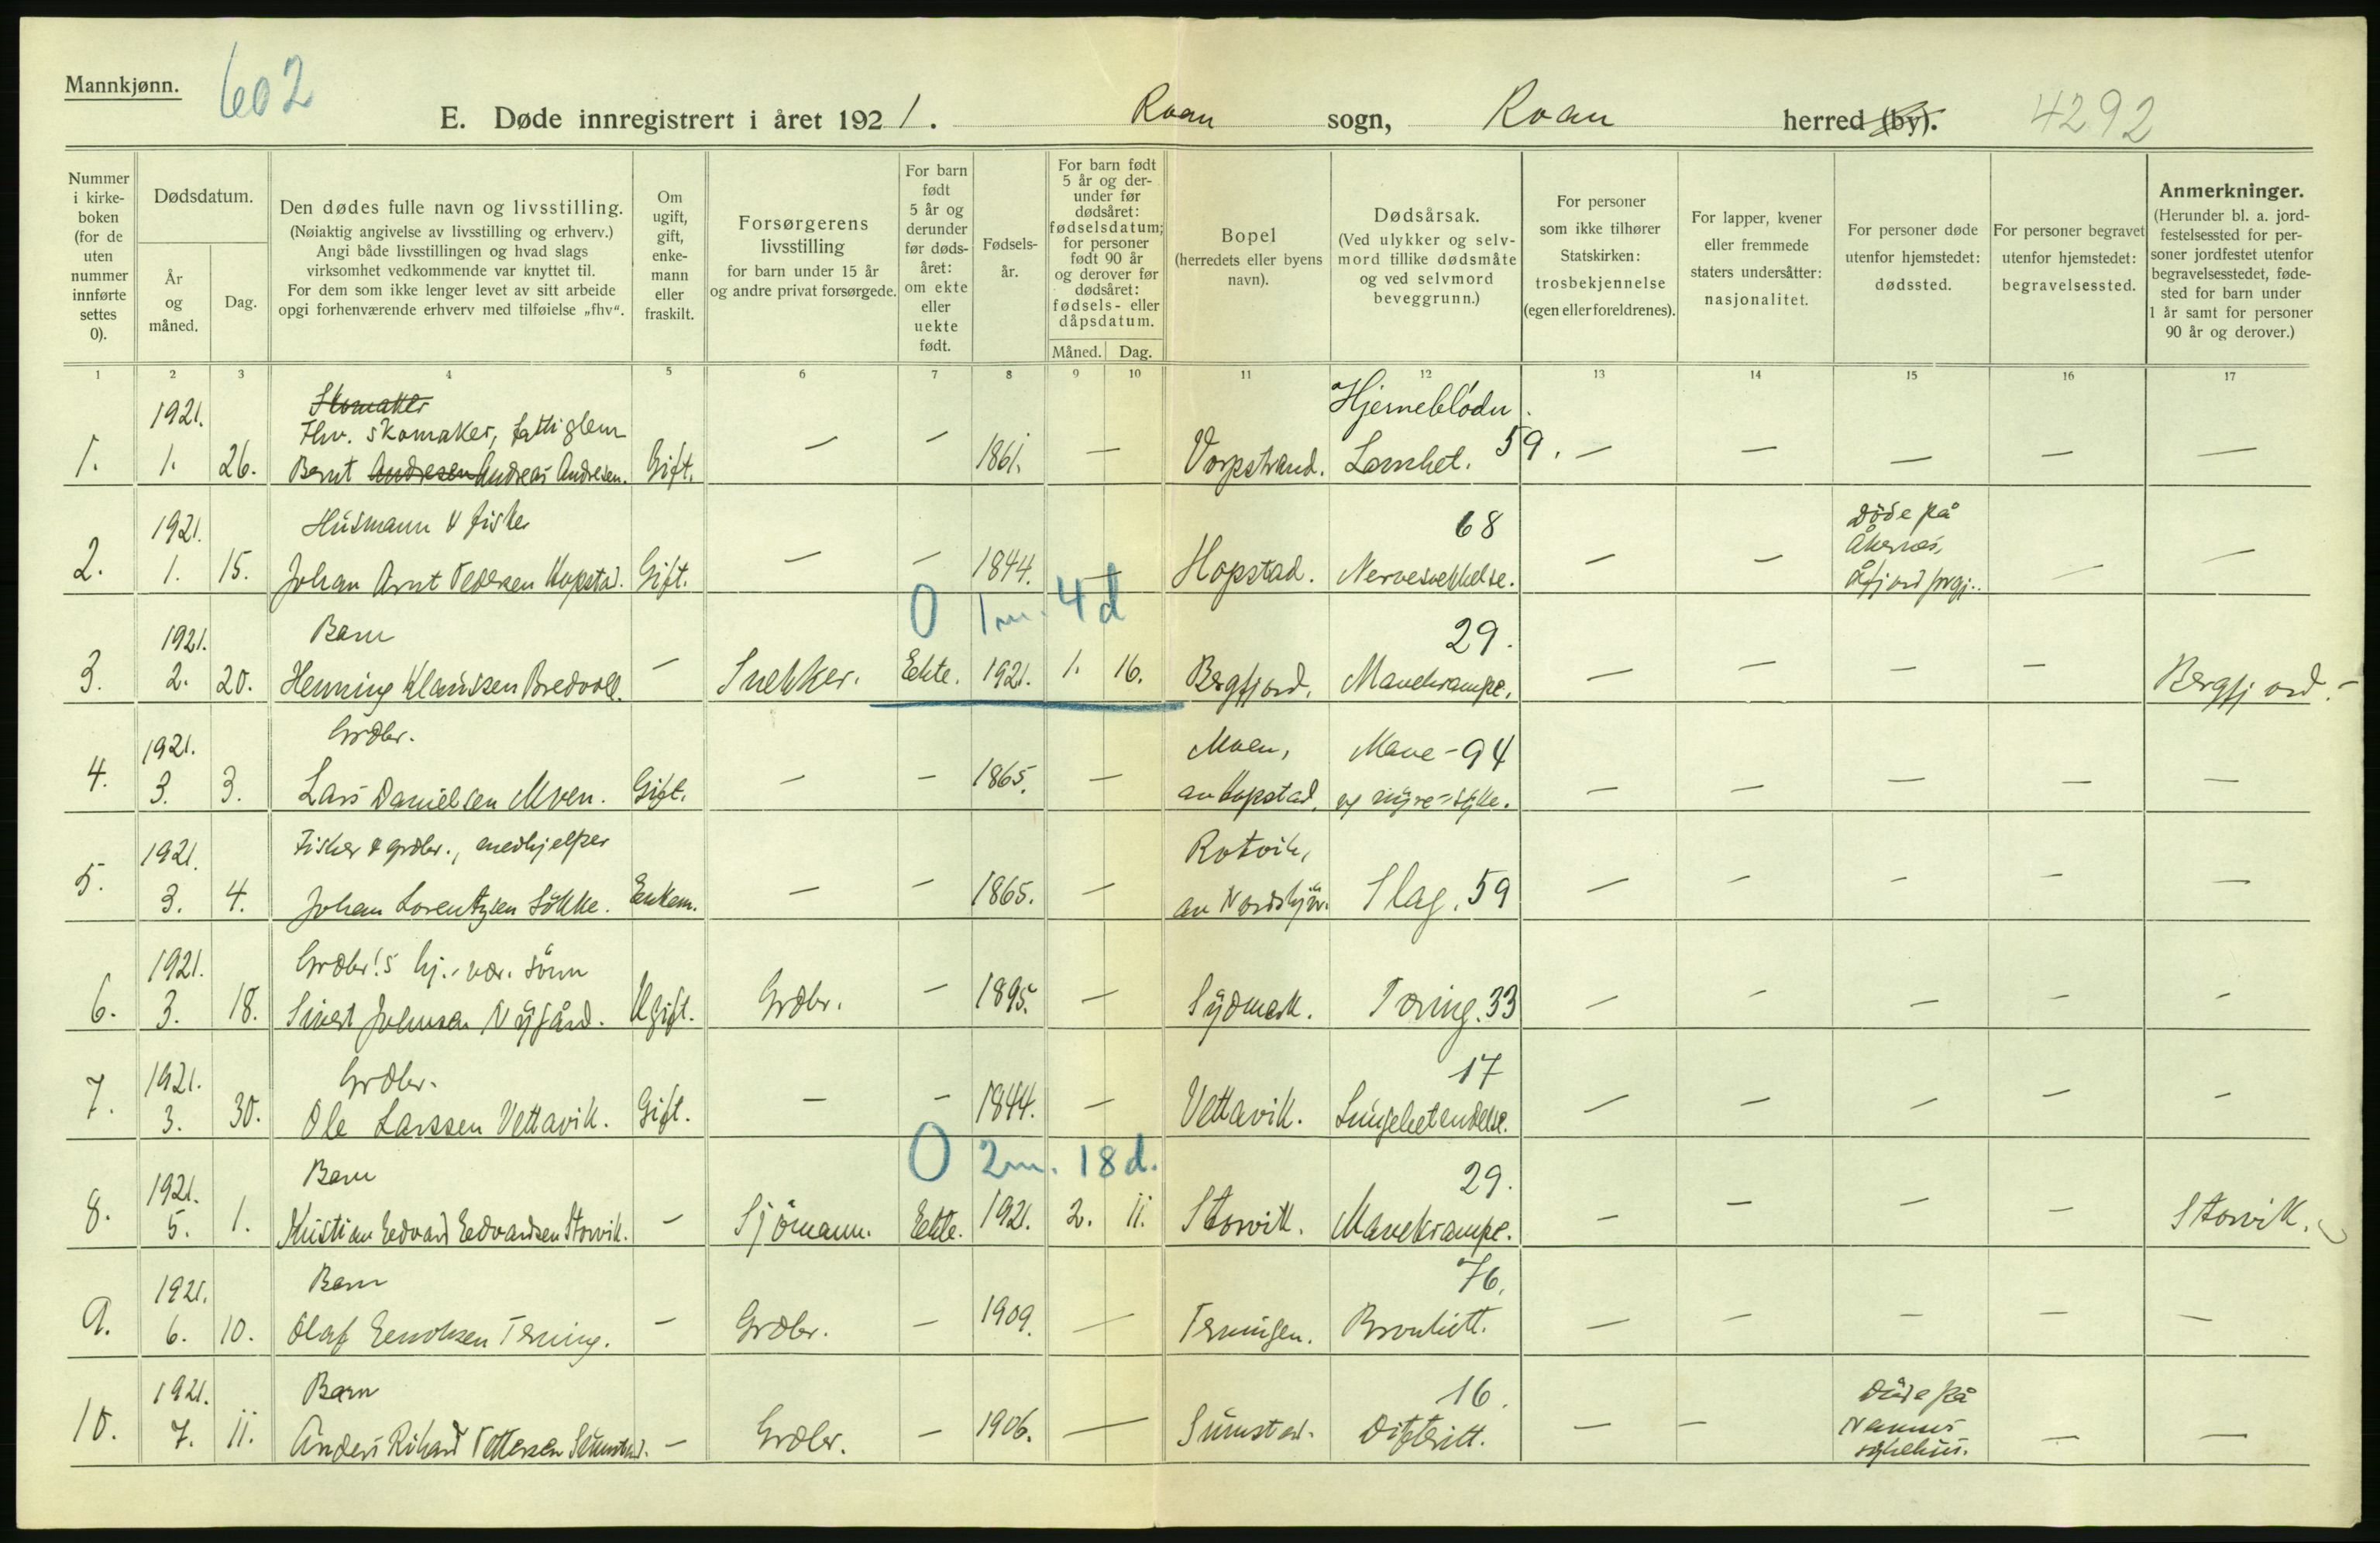 Mannkjønn.
602
E. Døde innregistrert i året 1921. Roan sogn, Roan herred (by).
4292
Nummer i kirke-boken (for de uten nummer innførte settes 0).
Dødsdatum.
År og måned.
Dag.
Den dødes fulle navn og livsstilling.
(Nøiaktig angivelse av livsstilling og erhverv.)
Angi både livsstillingen og hvad slags
virksomhet vedkommende var knyttet til.
For dem som ikke lenger levet av sitt arbeide
opgi forhenværende erhverv med tilføielse „fhv“.
Om ugift, gift, enke-mann eller fraskilt.
Forsørgerens livsstilling
for barn under 15 år
og andre privat forsørgede.
For barn født 5 år og derunder før døds-året: om ekte eller uekte født.
Fødsels-år.
For barn født 5 år og der-under før dødsåret: fødselsdatum; for personer født 90 år og derover før dødsåret: fødsels- eller dåpsdatum.
Måned. Dag.
Bopel
(herredets eller byens navn).
Dødsårsak.
(Ved ulykker og selv-mord tillike dødsmåte og ved selvmord beveggrunn.)
For personer som ikke tilhører Statskirken: trosbekjennelse (egen eller foreldrenes).
For lapper, kvener eller fremmede staters undersåtter: nasjonalitet.
For personer døde utenfor hjemstedet: dødssted.
For personer begravet utenfor hjemstedet: begravelsessted.
Anmerkninger.
(Herunder bl. a. jord-festelsessted for per-soner jordfestet utenfor begravelsesstedet, føde-sted for barn under 1 år samt for personer 90 år og derover.)
1 2 3 4 5 6 7 8 9 10 11 12 13 14 15 16 17
Skomaker Hjerneblödn.
1921. Fhv. skomaker, fattiglem
1. 1. 26. Bernt Andresen Andreas Andresen. Gift. — — 1861. — Vorpstrand. Lamhet. 59. — — — — —
1921. Husmann & fisker 68 Döde på
2. 1. 15. Johan Arnt Pedersen Hopstad. Gift. — — 1844. — Hopstad. Nervesvekkelse. — — Åkernes, Åfjord prgj. — —
0 1 m. 4 d
1921. Barn 29.
3. 2. 20. Henning Klaussen Bredvoll. — Snekker. Ekte. 1921. 1. 16. Bergfjord. Mavekrampe. — — — — Bergfjord. —
1921. Grdbr. Moen, Mave- 94
4. 3. 3. Lars Danielsen Moen. Gift. — — 1865. — av Hopstad. og nyre=syke. — — — — —
1921. Fisker & grdbr., medhjelper Rotvik,
5. 3. 4. Johan Lorentzen Sökke. Enkem. — — 1865. — av Nordskjör. Slag. 59 — — — — —
1921. Grdbr!s hj.-vær. sönn
6. 3. 18. Sivert Johnsen Nygård. Ugift. Grdbr. — 1895. — Sydmark. Tæring. 33 — — — — —
1921. Grdbr. 17
7. 3. 30. Ole Larssen Vettavik. Gift. — — 1844. — Vettavik. Lungebetendelse. — — — — —
0 2 m. 18 d.
1921. Barn 29.
8. 5. 1. Kristian Edvard Edvardsen Storvik. — Sjömann. Ekte. 1921. 2. 11. Storvik. Mavekrampe. — — — — Storvik.
1921. Barn 76.
9. 6. 10. Olaf Enoksen Terning. — Grdbr. — 1909. — Terningen. Bronkitt. — — — — —
1921. Barn 16. Döde på
10. 7. 11. Anders Rikard Pettersen Sumstad. — Grdbr. — 1906. — Sumstad. Difteritt. — — Namnus sykehus. — —